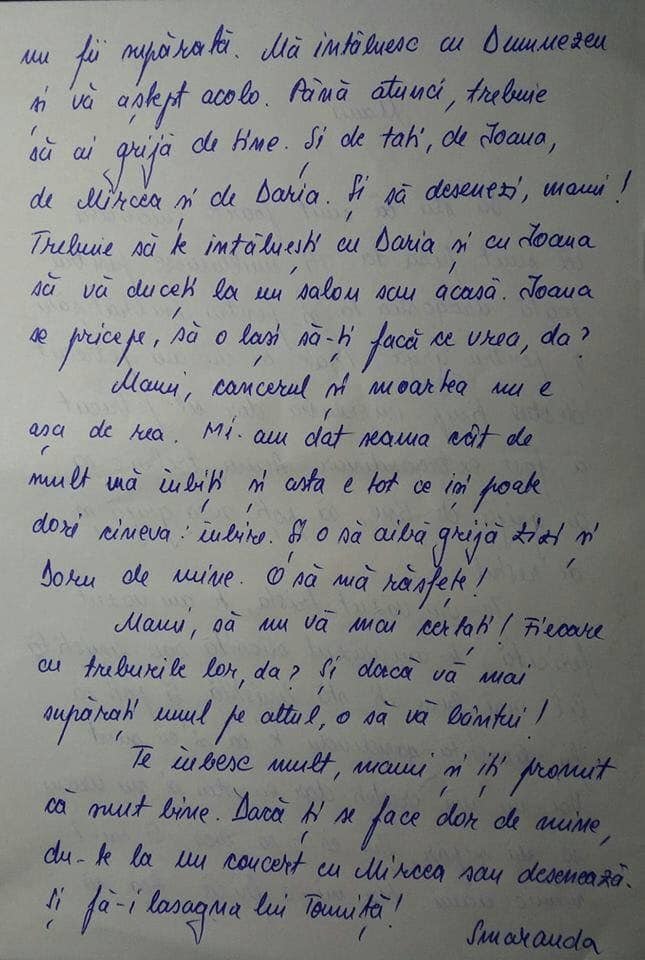 nu fii supărată. Mă întâlnesc cu Dumnezeu
și vă aștept acolo. Până atunci, trebuie
să ai grijă de tine. Și de tati, de Ioana,
de Mircea și de Daria. Și să desenezi, mami!
Trebuie să te întâlnești cu Daria și cu Ioana
să vă duceți la un salon sau acasă. Ioana
se pricepe, să o lași să-ți facă ce vrea, da?
Mami, cancerul și moartea nu e
așa de rea. Mi-am dat seama cât de
mult mă iubiți și asta e tot ce își poate
dori cineva: iubire. Și o să aibă grijă Zizi și
Doru de mine. O să mă răsfețe!
Mami, să nu vă mai certați! Fiecare
cu treburile lor, da? Și dacă vă mai
supărați unul pe altul, o să vă bântui!
Te iubesc mult, mami și îți promit
că sunt bine. Dacă ți se face dor de mine,
du-te la un concert cu Mircea sau desenează.
Și fă-i lasagna lui Tomiță!
Smaranda